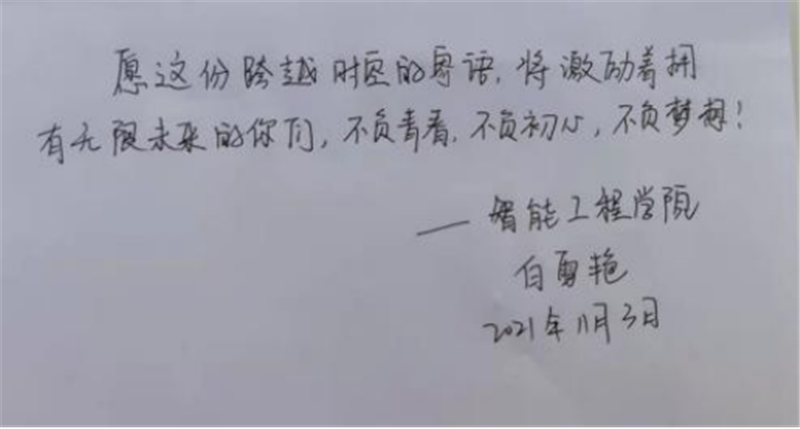 愿这份跨越时空的寄语,将激励着拥
有无限未来的你们,不负青春,不负初心,不负梦想!
——智能工程学院
白雪艳
2021年11月3日